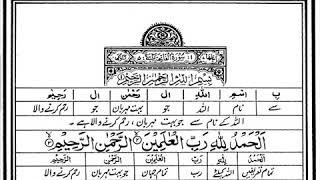 سورة الفاتحة
بِسْمِ اللّٰهِ الرَّحْمٰنِ الرَّحِيْمِ
بِ اسْمِ اللّٰهِ ال رَحْمٰنِ ال رَحِيْمِ
سے نام اللہ جو بہت مہربان جو رحم کرنے والا
اللہ کے نام سے جو بہت مہربان، رحم کرنے والا ہے۔
اَلْحَمْدُ لِلّٰهِ رَبِّ الْعٰلَمِيْنَ الرَّحْمٰنِ الرَّحِيْمِ
اَلْحَمْدُ لِلّٰهِ رَبِّ الْعٰلَمِيْنَ الرَّحْمٰنِ الرَّحِيْمِ
تمام تعریفیں اللہ رب تمام جہان جو بہت مہربان رحم کرنے والا